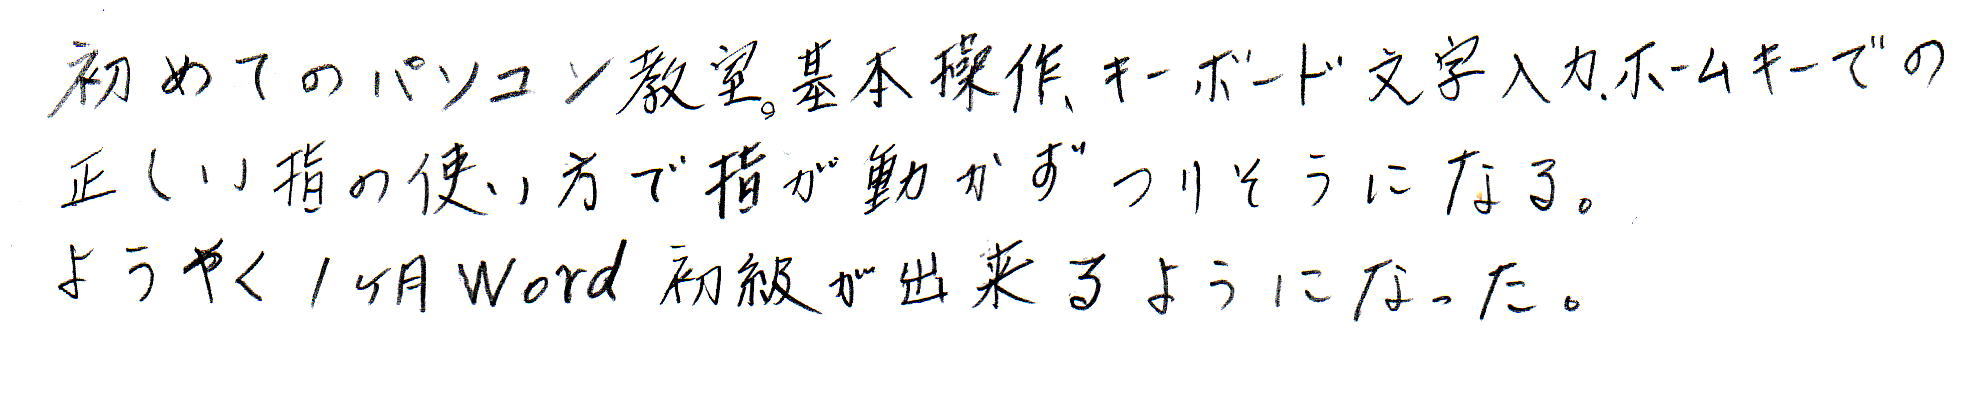 初めてのパソコン教室。基本操作、キーボード文字入力、ホームキーでの
正しい指の使い方で指が動かずつりそうになる。
ようやく1ヶ月Word初級が出来るようになった。